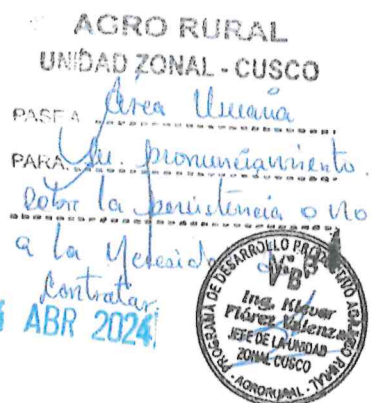 AGRO RURAL
UNIDAD ZONAL - CUSCO
PASE A Area Usuaria
PARA: Su pronunciamiento.
Sobre la persistencia o No
a la Necesidad de
Contratar.
ABR 2024
PROGRAMA DE DESARROLLO PRODUCTIVO AGRARIO RURAL
V°B°
Ing. Klever
Flórez Valenza
JEFE DE LA UNIDAD
ZONAL CUSCO
- AGRORURAL -